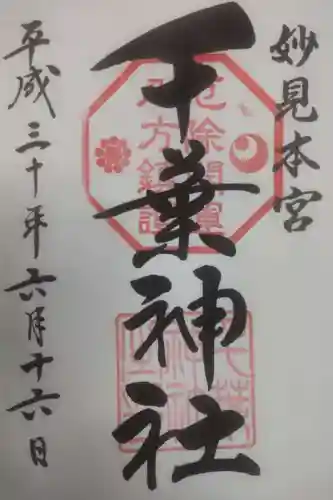 妙見本宮
千葉神社
厄除開運
八方鎮護
平成三十年六月十六日